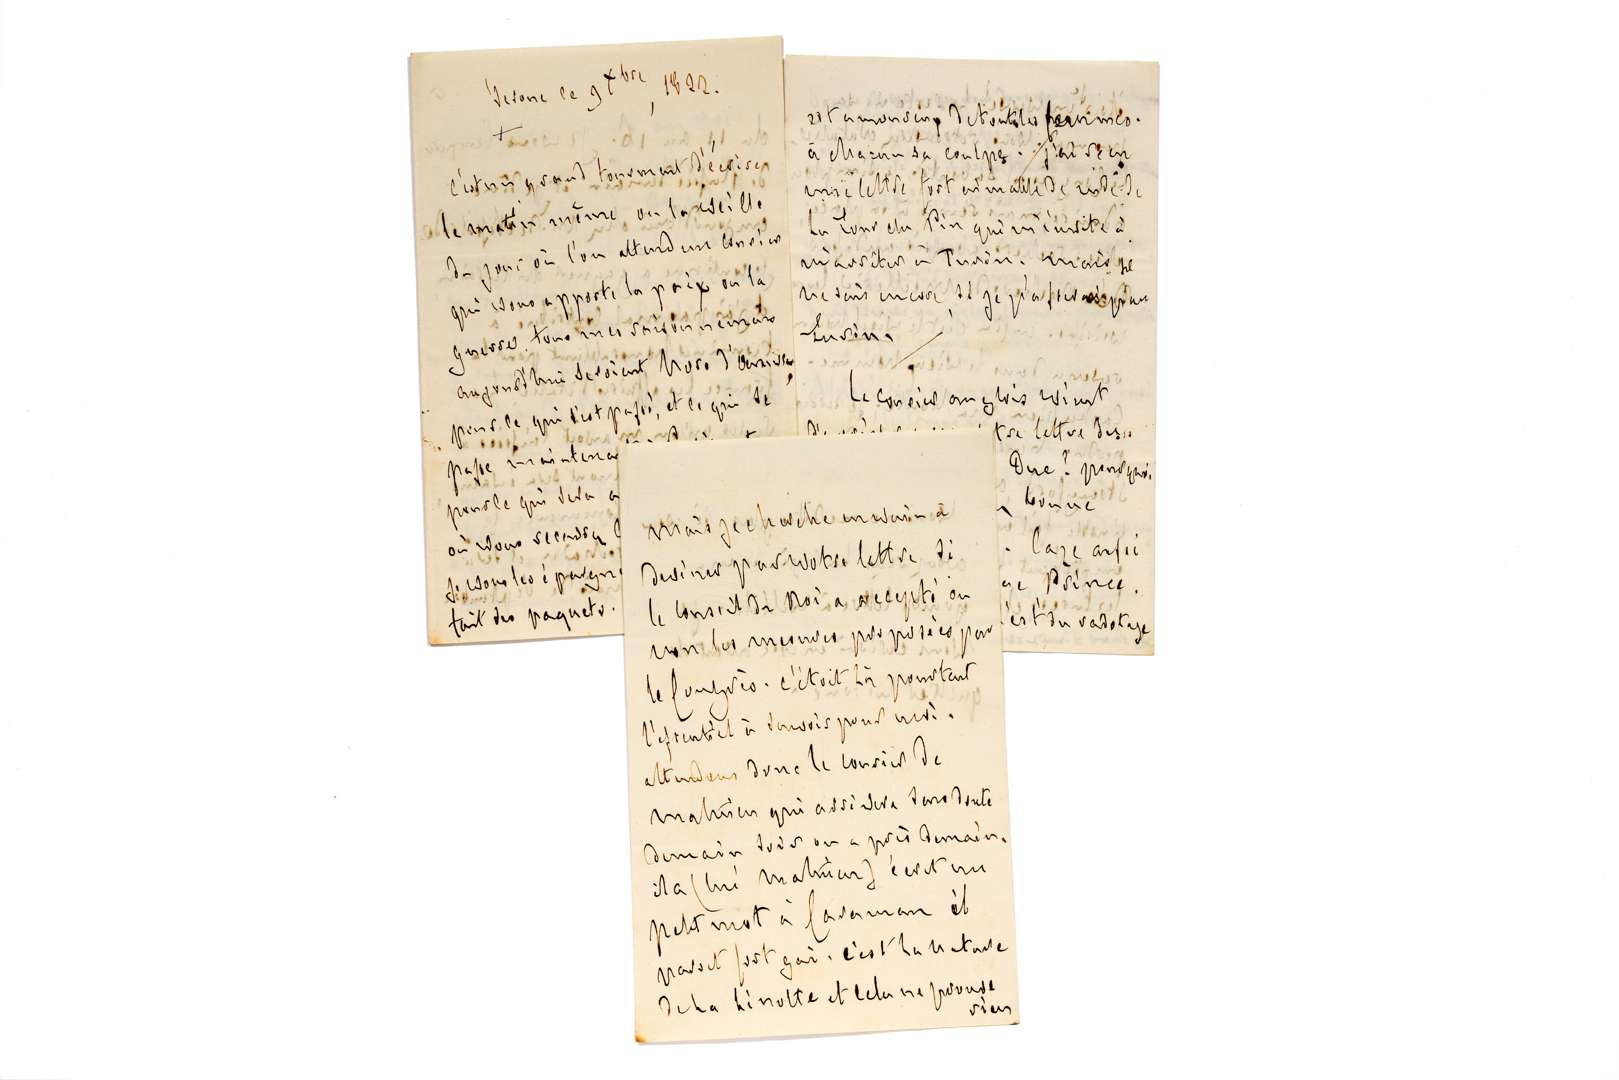 Verone ce 9 Xbre, 1822.
+
c'est un grand tourment d'écrire
le matin même ou la veille
du jour où l'on attend un courier
qui vous apporte la paix ou la
guerre. tous mes raisonnemens
aujourd'hui seroient hors d'oeuvre
pour ce qui s'est passé, et ce qui se
passe maintenant
pour ce qui sera a
où vous recevrez l
je vous les épargne
fait des paquets.
à chacun sa coulpe. j'ai reçu
une lettre fort aimable de
La Tour du Pin qui m'invite à
m'arrêter à Turin. mais je
ne sais encore si je passerai par
Turin.
Le courier anglois vient
tre lettre
Duc? pourquoi
bonne
. l'aze assi
Prince.
c'est du radotage
mais je cherche en vain à
deviner par votre lettre si
le conseil du Roi a accepté ou
non les mesures proposées par
le Congrès. c'étoit là pourtant
l'essentiel à savoir pour moi.
attendons donc le courier de
mathieu qui arrivera sans doute
demain soir ou après demain.
il a (lui mathieu) écrit un
petit mot à Caraman il
paroit fort gai. c'est la nature
de la linotte et cela ne prouve
rien